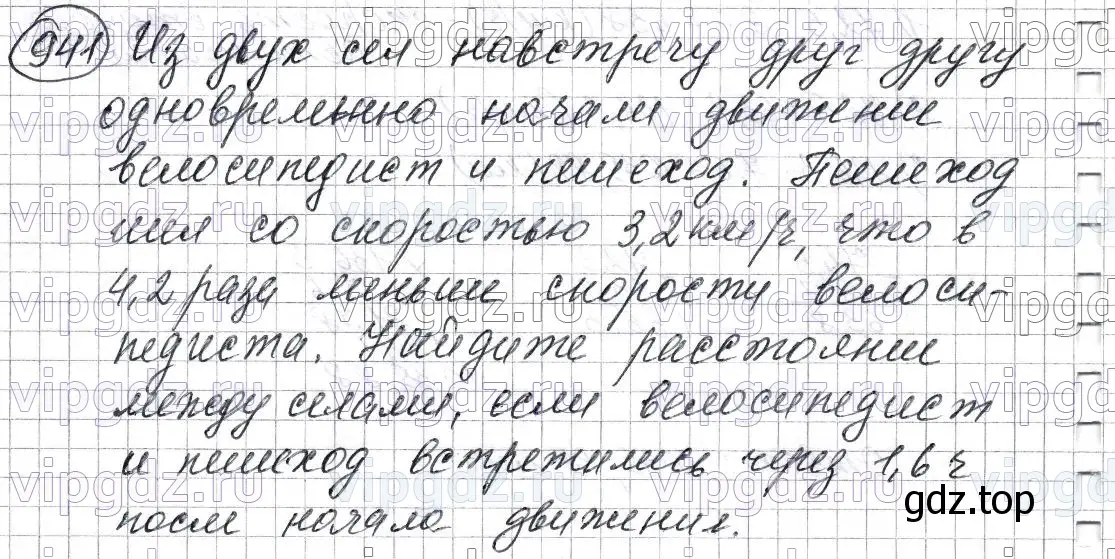 941 Из двух сел навстречу друг другу
одновременно начали движение
велосипедист и пешеход. Пешеход
шел со скоростью 3,2 км/ч, что в
4,2 раза меньше скорости велоси-
педиста. Найдите расстояние
между селами, если велосипедист
и пешеход встретились через 1,6 ч
после начала движения.
gdz.top
vipgdz.ru